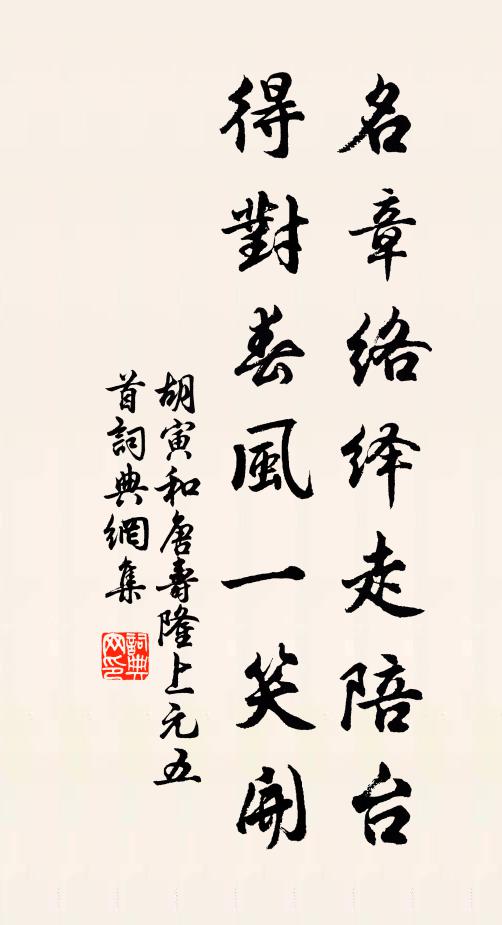 名章络绎走陪台
得對春風一笑開
胡寅和唐壽隆上元五
首詞典網集
詞典网印